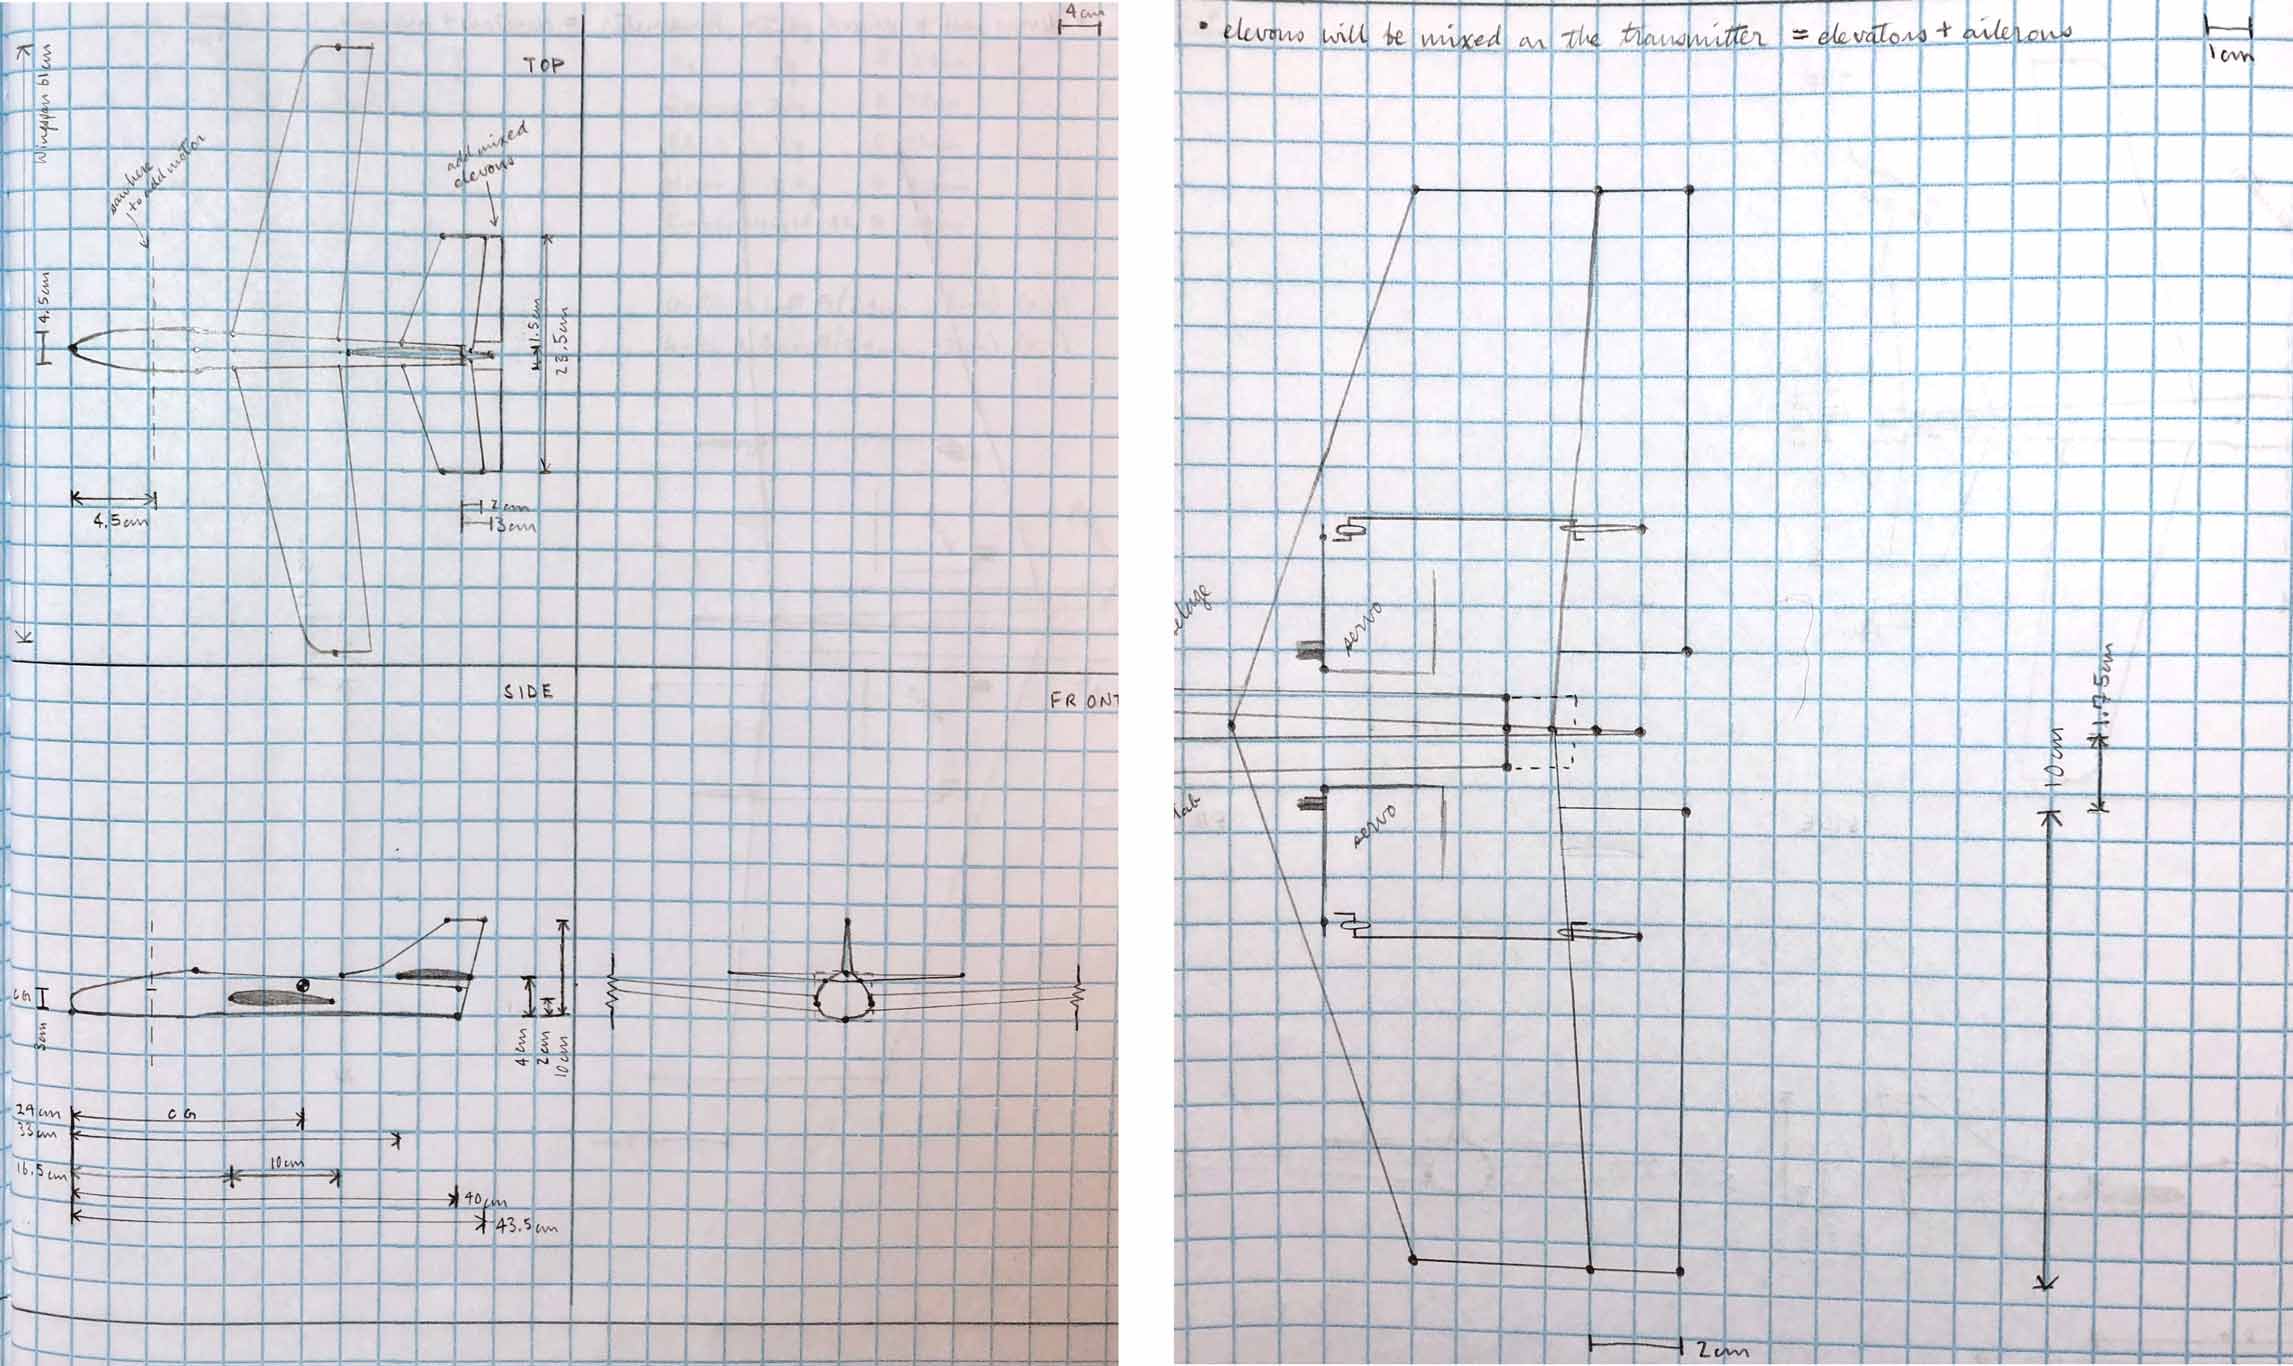 4cm
TOP
Wingspan 61cm
sawhere
to add motor
add mixed
elevons
4.5cm
1.5cm
23.5cm
4.5cm
2cm
13cm
SIDE
FRONT
CG
3cm
4cm
2cm
10cm
24cm
CG
33cm
16.5cm
10cm
40cm
43.5cm
• elevons will be mixed on the transmitter = elevators + ailerons
1cm
servo
servo
1.75cm
10cm
2cm